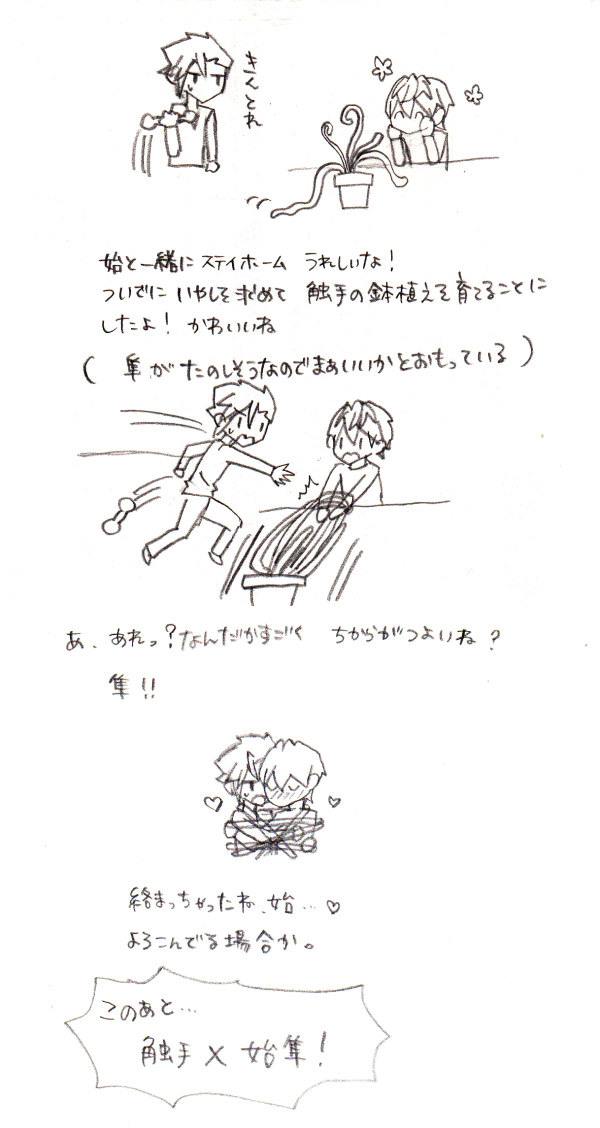 きんとれ
始と一緒に ステイホーム うれしいな！
ついでに いやしを求めて 触手の鉢植えを育てることに
したよ！ かわいいね
( 隼がたのしそうなのでまあいいかとおもっている )
あ、あれっ？なんだかすごく ちからがつよいね？
隼!!
絡まっちゃったね、始…♡
よろこんでる場合か。
このあと…
触手×始隼！